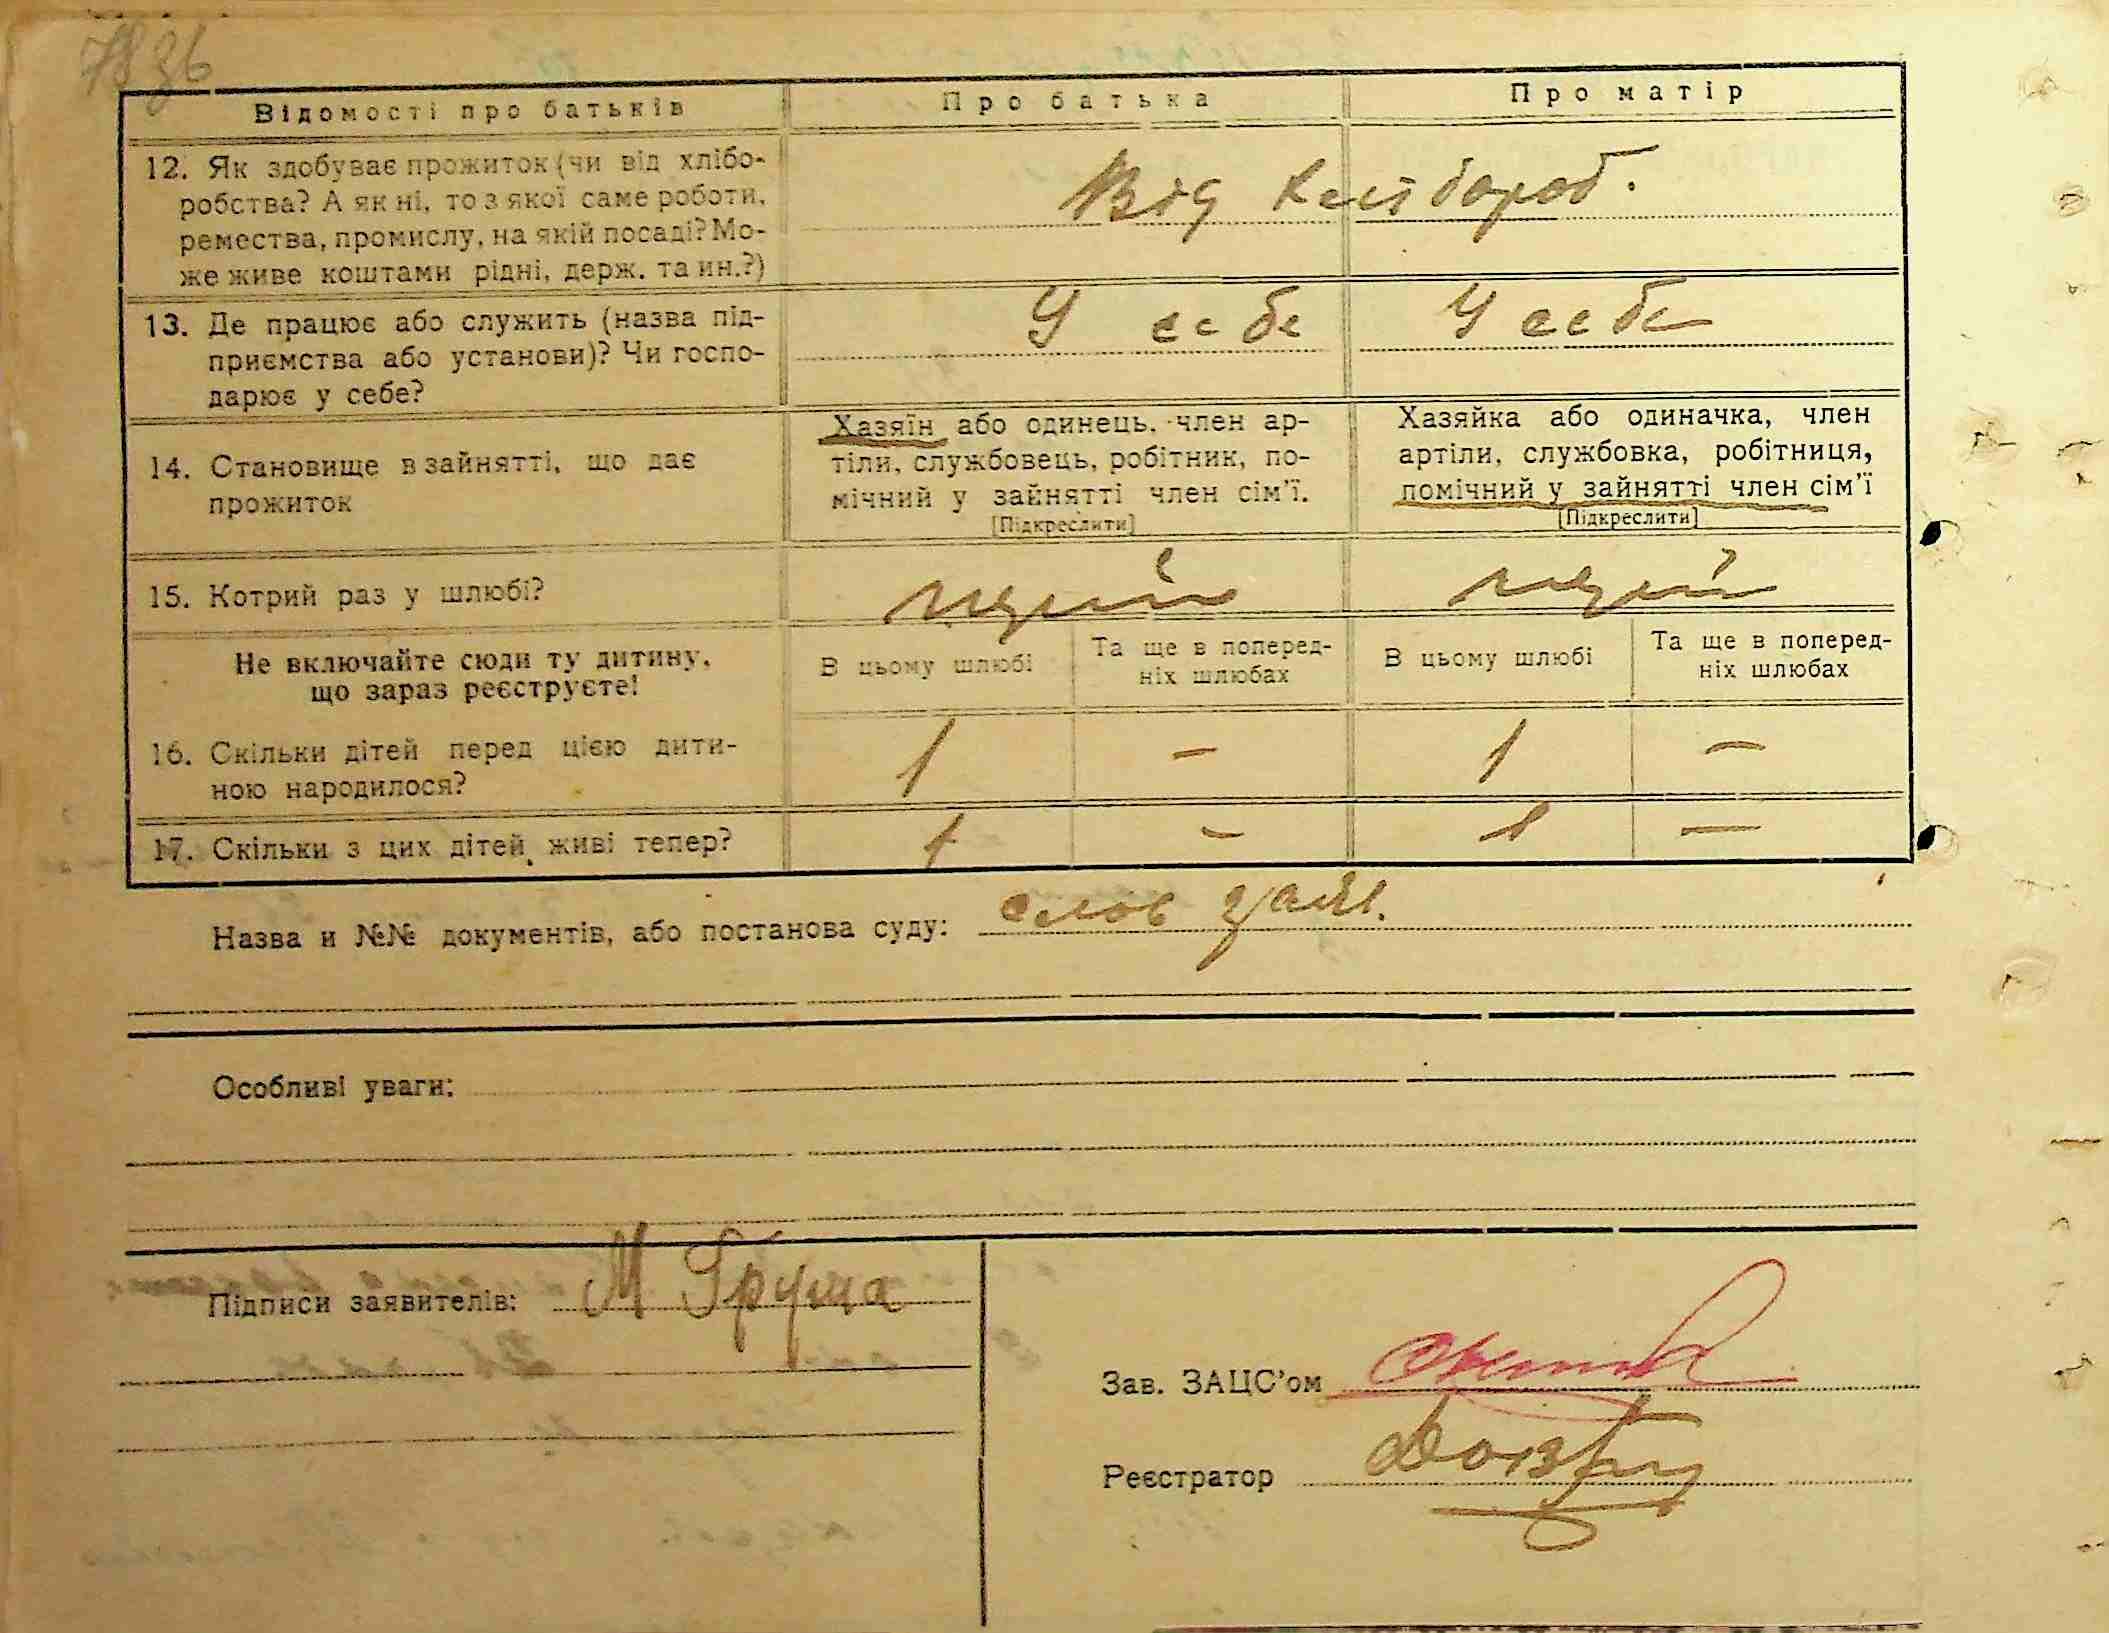 78 зв
Відомості про батьків
Про батька
Про матір
12. Як здобуває прожиток (чи від хлібо-
робства? А як ні, то з якої саме роботи,
ремества, промислу, на якій посаді? Мо-
же живе коштами рідні, держ. та ин.?)
Від хлібороб.
13. Де працює або служить (назва під-
приємства або установи)? Чи госпо-
дарює у себе?
У себе
У себе
14. Становище в зайнятті, що дає
прожиток
Хазяїн або одинець, член ар-
тіли, службовець, робітник, по-
мічний у зайнятті член сім'ї.
[Підкреслити]
Хазяйка або одиначка, член
артіли, службовка, робітниця,
помічний у зайнятті член сім'ї
[Підкреслити]
15. Котрий раз у шлюбі?
Не включайте сюди ту дитину,
що зараз реєструєте!
В цьому шлюбі
Та ще в поперед-
ніх шлюбах
В цьому шлюбі
Та ще в поперед-
ніх шлюбах
16. Скільки дітей перед цією дити-
ною народилося?
1 - 1 -
17. Скільки з цих дітей живі тепер?
1 - 1 -
Назва и №№ документів, або постанова суду: слов заяв.
Особливі уваги:
Підписи заявителів: М Груша
Зав. ЗАЦС'ом
Реєстратор